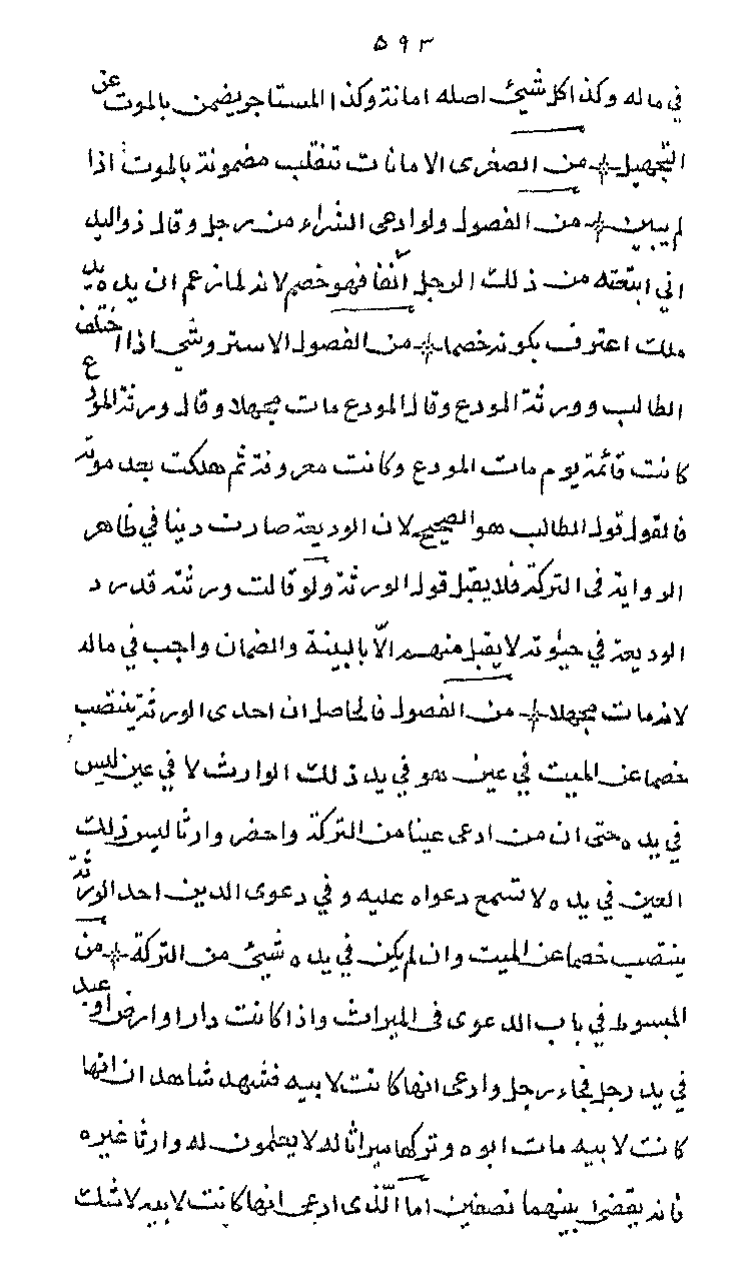 ٥٩٣
في ماله وكذا كل شيئ اصله امانة وكذا المستاجر يضمن بالموت عن
التجهيل من الصغرى الامانات تنقلب مضمونة بالموت اذا
لم يبين من الفصول ولو ادعى الشراء من رجل وقال ذو اليد
اني ابتعته من ذلك الرجل آنفا فهو خصم لانه لما زعم ان يده يد
ملك اعترف بكونه خصما من الفصول الاستروشي اذا اختلف
الطالب وورثة المودع وقال المودع مات مجهلا وقال ورثة المودع
كانت قائمة يوم مات المودع وكانت معروفة ثم هلكت بعد موته
فالقول قول الطالب هو الصحيح لان الوديعة صارت دينا في ظاهر
الرواية في التركة فلا يقبل قول الورثة ولو قالت ورثته قد رد
الوديعة في حيوته لا يقبل منهم الّا بالبينة والضمان واجب في ماله
لانه مات مجهلا من الفصول فالحاصل ان احدى الورثة ينتصب
خصما عن الميت في عين هو في يد ذلك الوارث لا في عين ليس
في يده حتى ان من ادعى عينا من التركة واحضر وارثا ليس ذلك
العين في يده لا تسمع دعواه عليه وفي دعوى الدين احد الورثة
ينتصب خصما عن الميت وان لم يكن في يده شيئ من التركة من
المبسوط في باب الدعوى في الميراث واذا كانت دار او ارض او عبد
في يد رجل فجاء رجل وادعى انها كانت لابيه فشهد شاهد ان انها
كانت لابيه مات ابوه وتركها ميراثا له لا يعلمون له وارثا غيره
فانه يقضى بينهما نصفين اما الّذى ادعى انها كانت لابيه لا شك